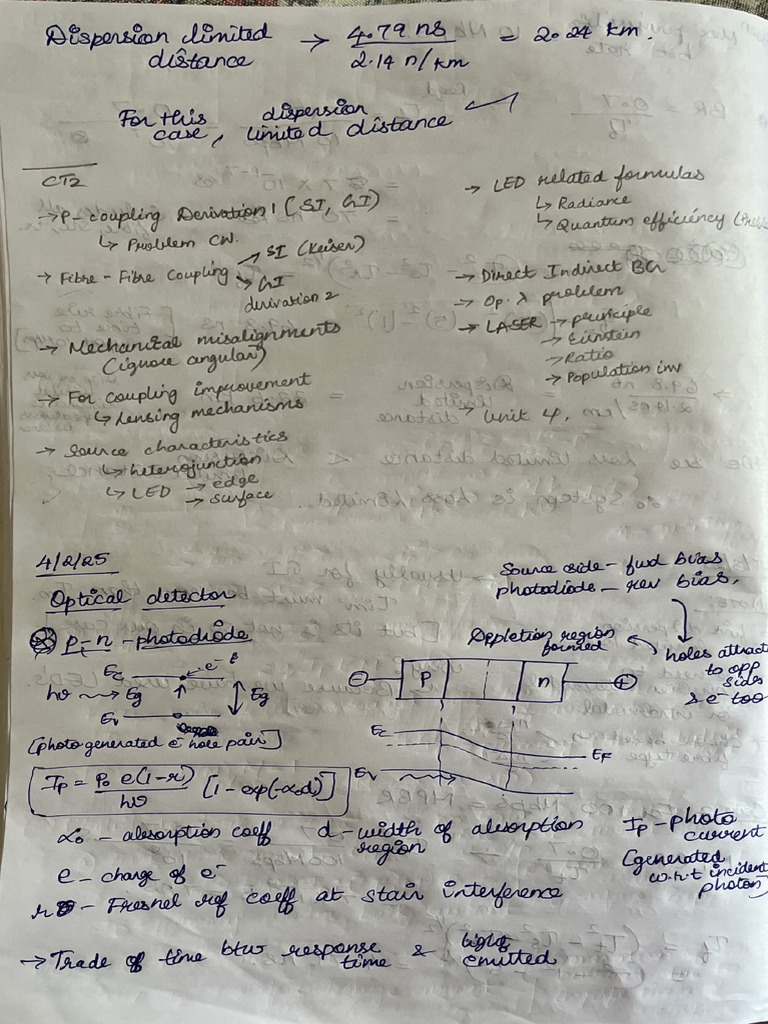 Dispersion limited distance → 4.79 ns / 2.14 n/km = 2.24 km.
For this case, dispersion limited distance
CT2
→ P-coupling Derivation 1 (SI, GI)
↳ Problem CW.
→ Fibre - Fibre Coupling → SI (Keiser)
→ GI
derivation 2
→ Mechanical misalignments
(ignore angular)
→ For coupling improvement
↳ Lensing mechanisms
→ Source characteristics
↳ heterojunction
↳ LED → edge
→ surface
→ LED related formulas
↳ Radiance
↳ Quantum efficiency
→ Direct Indirect BG
→ Op. λ problem
→ LASER → principle
→ Einstein
→ Ratio
→ Population inv
→ Unit 4.
4/2/25
Optical detector
Source side - fwd bias
photodiode - rev bias.
p-n-photodiode
Depletion region
formed
holes attract
to opp
sides
& e⁻ too
Ec e⁻
hν Eg Eg
Ev
[photo generated e⁻ hole pair]
⊖ P n ⊕
Ec
EF
Ev
Ip = P₀ e(1-r) / hν [1 - exp(-α₀d)]
α₀ - absorption coeff d - width of absorption
region
Ip - photo
current
(generated
w.r.t incident
photon)
e - charge of e⁻
r - Fresnel ref coeff at stair interference
→ Trade of time btw response time & emitted